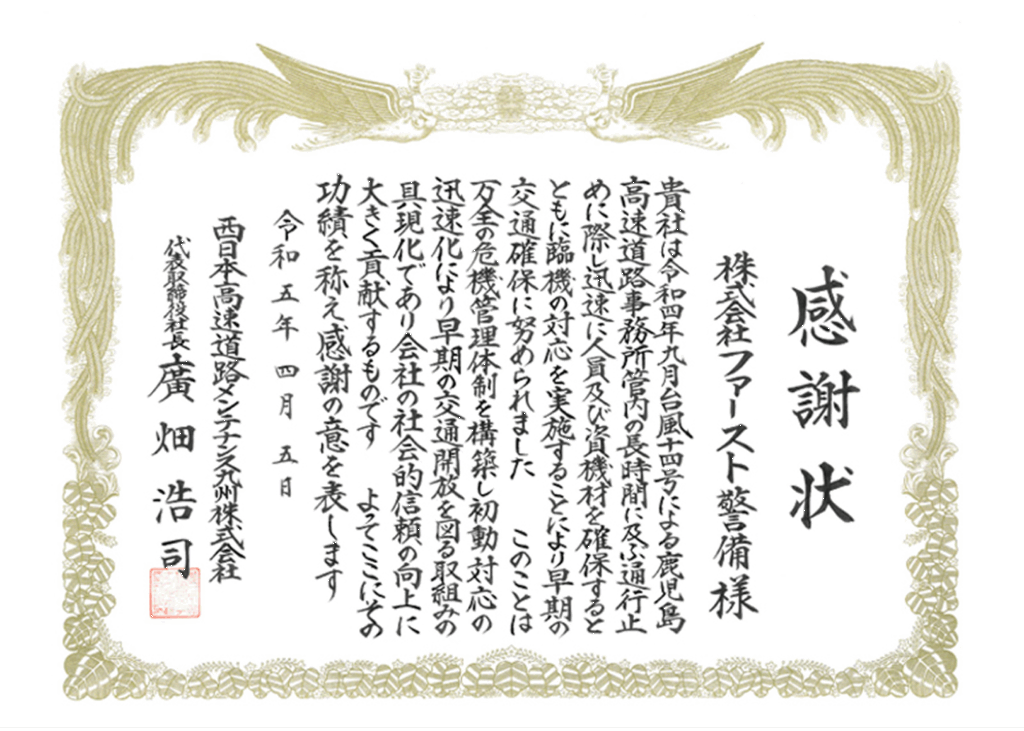 感謝状
株式会社ファースト警備様
貴社は令和四年九月台風十四号による鹿児島
高速道路事務所管内の長時間に及ぶ通行止
めに際し迅速に人員及び資機材を確保すると
ともに臨機の対応を実施することにより早期の
交通確保に努められました　このことは
万全の危機管理体制を構築し初動対応の
迅速化により早期の交通開放を図る取組みの
具現化であり会社の社会的信頼の向上に
大きく貢献するものです　よってここにその
功績を称え感謝の意を表します
令和五年四月五日
西日本高速道路メンテナンス九州株式会社
代表取締役社長 廣畑浩司